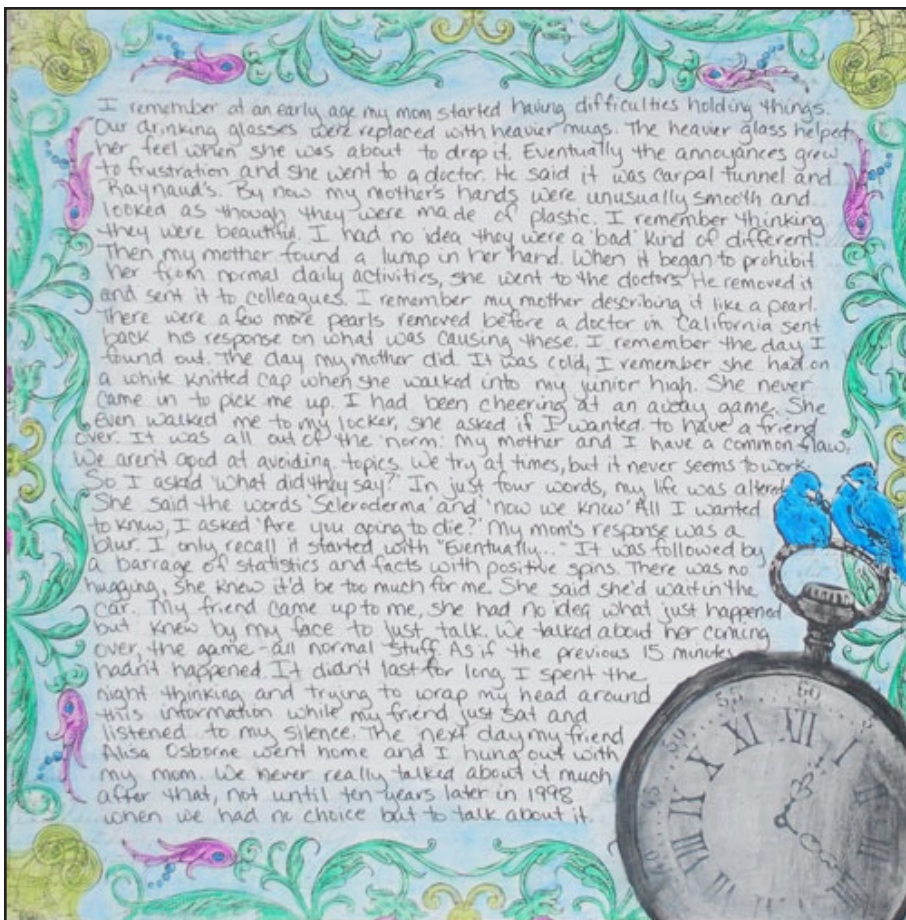 I remember at an early age my mom started having difficulties holding things.
Our drinking glasses were replaced with heavier mugs. The heavier glass helped
her feel when she was about to drop it. Eventually the annoyances grew
to frustration and she went to a doctor. He said it was carpal tunnel and
Raynaud's. By now my mother's hands were unusually smooth and
looked as though they were made of plastic. I remember thinking
they were beautiful. I had no idea they were a 'bad' kind of different.
Then my mother found a lump in her hand. When it began to prohibit
her from normal daily activities, she went to the doctors. He removed it
and sent it to colleagues. I remember my mother describing it like a pearl.
There were a few more pearls removed before a doctor in California sent
back his response on what was causing these. I remember the day I
found out. The day my mother did. It was cold, I remember she had on
a white knitted cap when she walked into my junior high. She never
came in to pick me up. I had been cheering at an away game. She
even walked me to my locker, she asked if I wanted to have a friend
over. It was all out of the 'norm.' My mother and I have a common flaw,
we aren't good at avoiding topics. We try at times, but it never seems to work.
So I asked 'what did they say?' In just four words, my life was altered
She said the words 'Scleroderma' and 'now we know' All I wanted
to know, I asked 'Are you going to die?' My mom's response was a
blur. I only recall it started with "Eventually..." It was followed by
a barrage of statistics and facts with positive spins. There was no
hugging, she knew it'd be too much for me. She said she'd wait in the
car. My friend came up to me, she had no idea what just happened
but knew by my face to just talk. We talked about her coming
over, the game - all normal stuff. As if the previous 15 minutes
hadn't happened. It didn't last for long, I spent the
night thinking and trying to wrap my head around
this information while my friend just sat and
listened to my silence. The next day my friend
Alisa Osborne went home and I hung out with
my mom. We never really talked about it much
after that, not until ten years later in 1998
when we had no choice but to talk about it.
50 55 60
XII I
XI
X
IX
VIII
VII